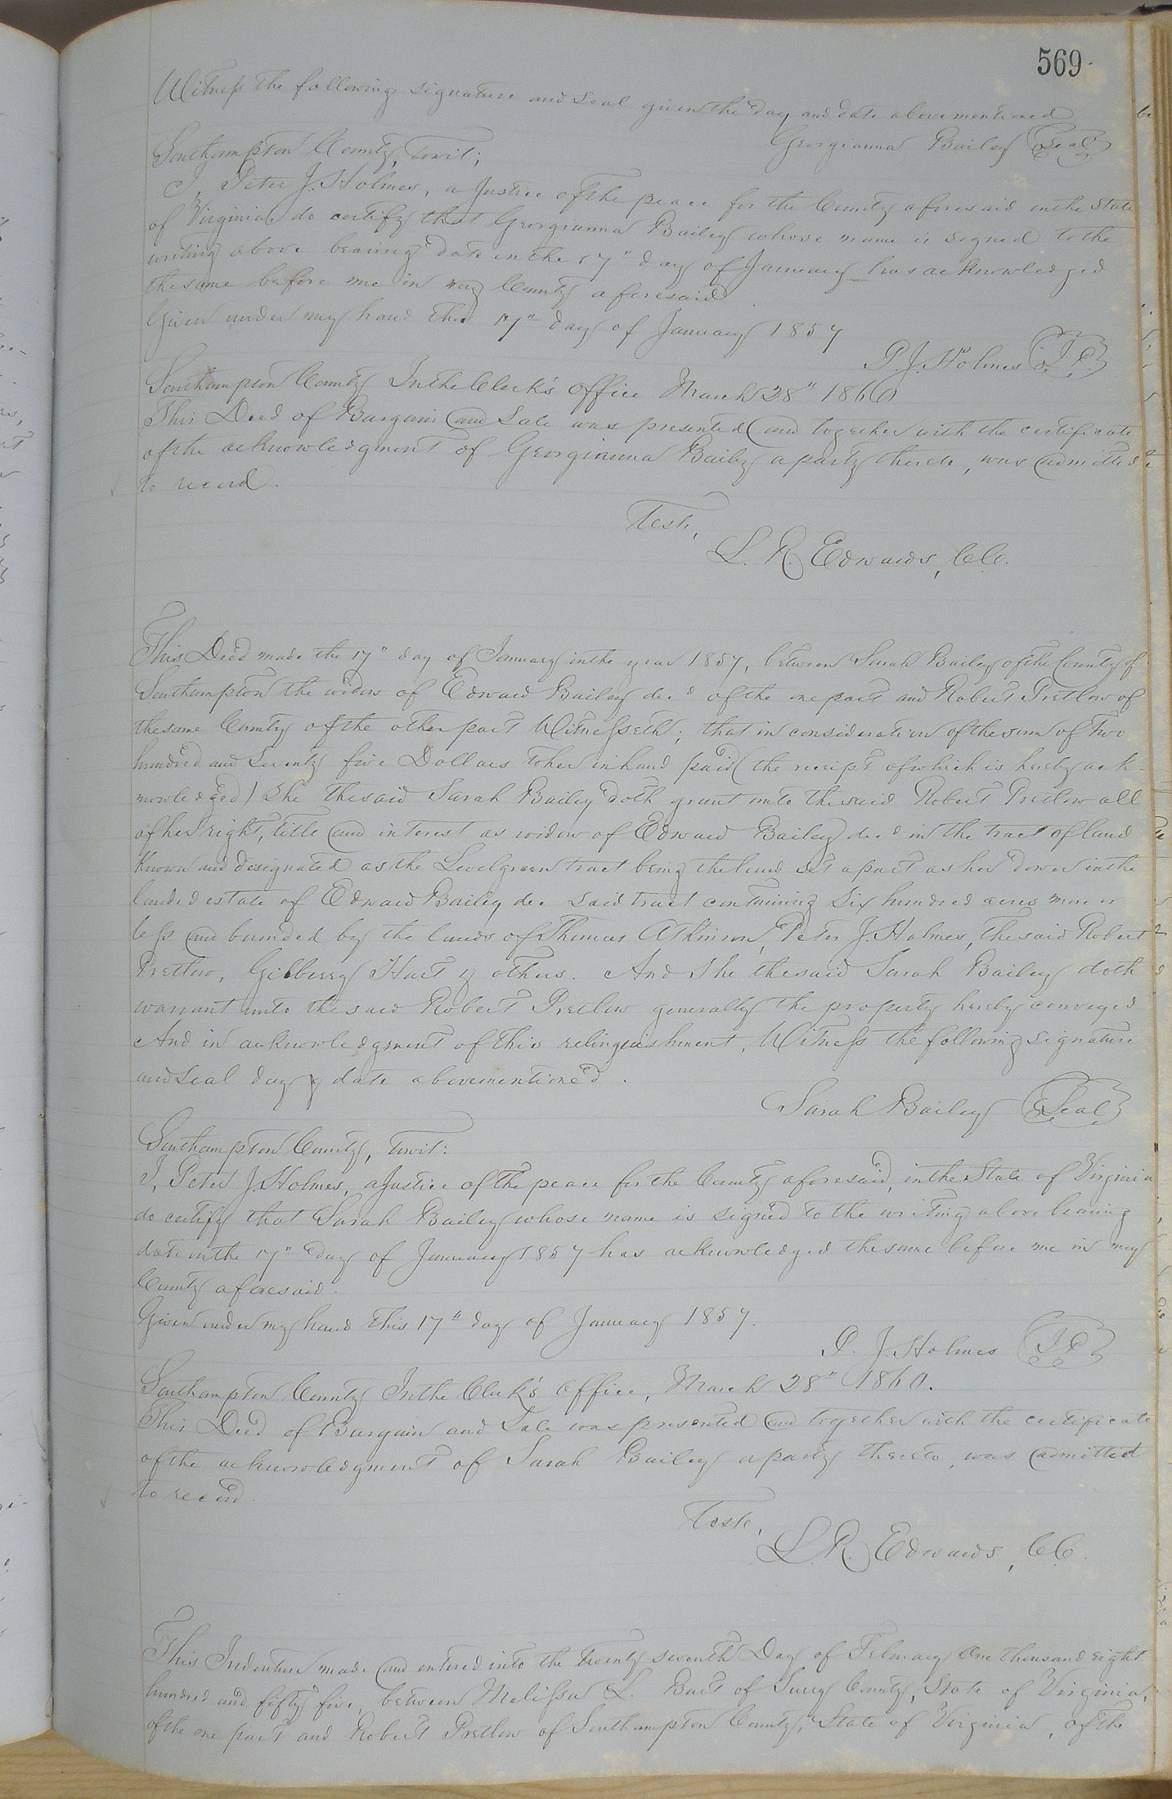 569
Witness the following signature and seal given the day and date abovementioned
Georgianna Bailey Seal
Southampton County, towit;
I, Peter J. Holmes, a Justice of the peace for the County aforesaid in the State
of Virginia do certify that Georgianna Bailey whose name is signed to the
writing above bearing date on the 17" day of January has acknowledged
the same before me in my County aforesaid
Given under my hand this 17" day of January 1857
P. J. Holmes J.P.
Southampton County In the Clerk's Office March 28" 1860
This Deed of Bargain and Sale was presented and together with the certificate
of the acknowledgment of Georgianna Bailey a party thereto, was admitted
to record.
Teste,
L. R. Edwards, C.C.
This Deed made the 17" day of January in the year 1857, between Sarah Bailey of the County of
Southampton the widow of Edward Bailey decd of the one part and Robert Pretlow of
the same County of the other part Witnesseth; that in consideration of the sum of Two
hundred and Seventy five Dollars to her in hand paid (the receipt of which is hereby ack-
nowledged) She the said Sarah Bailey doth grant unto the said Robert Pretlow all
of her right, title and interest as widow of Edward Bailey decd in the tract of land
known and designated as the Levelgreen tract being the land set apart as her dower in the
landed estate of Edward Bailey dec. said tract containing Six hundred acres more or
less and bounded by the lands of Thomas Atkinson, Peter J. Holmes, the said Robert
Pretlow, Gilberry Hart & others. And she the said Sarah Bailey doth
warrant unto the said Robert Pretlow generally the property hereby conveyed
And in acknowledgment of this relinquishment, Witness the following signature
and seal day & date abovementioned.
Sarah Bailey Seal
Southampton County, towit:
I, Peter J. Holmes, a Justice of the peace for the County aforesaid, in the State of Virginia
do certify that Sarah Bailey whose name is signed to the writing above bearing
date on the 17" day of January 1857 has acknowledged the same before me in my
County aforesaid.
Given under my hand this 17" day of January 1857.
P. J. Holmes J.P.
Southampton County In the Clerk's Office, March 28" 1860.
This Deed of Bargain and Sale was presented and together with the certificate
of the acknowledgment of Sarah Bailey a party thereto, was admitted
to record.
Teste,
L. R. Edwards, C.C.
This Indenture made and entered into the twenty seventh Day of February One thousand eight
hundred and fifty five, between Melissa L. of Surry County, State of Virginia,
of the one part and Robert Pretlow of Southampton County, State of Virginia, of the